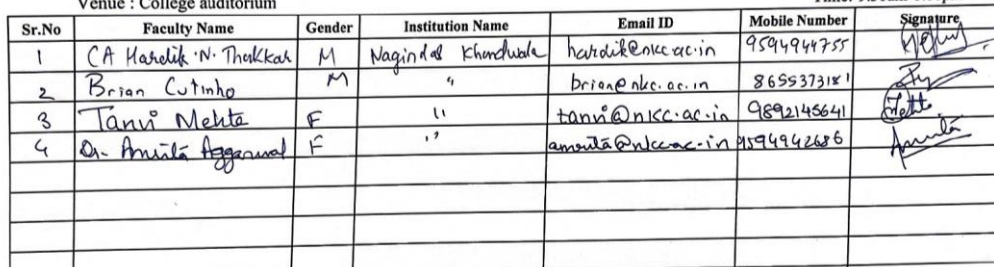 Venue : College auditorium
Sr.No Faculty Name Gender Institution Name Email ID Mobile Number Signature
1 CA Hardik .N. Thakkar M Nagindas Khandwala hardik@nkc.ac.in 9594944755
2 Brian Cutinho M " brian@nkc.ac.in 8655373181
3 Tanvi Mehta F " tanvi@nkc.ac.in 9892145641
4 Dr. Amrita Aggarwal F " amrita@nkc.ac.in 9594942686